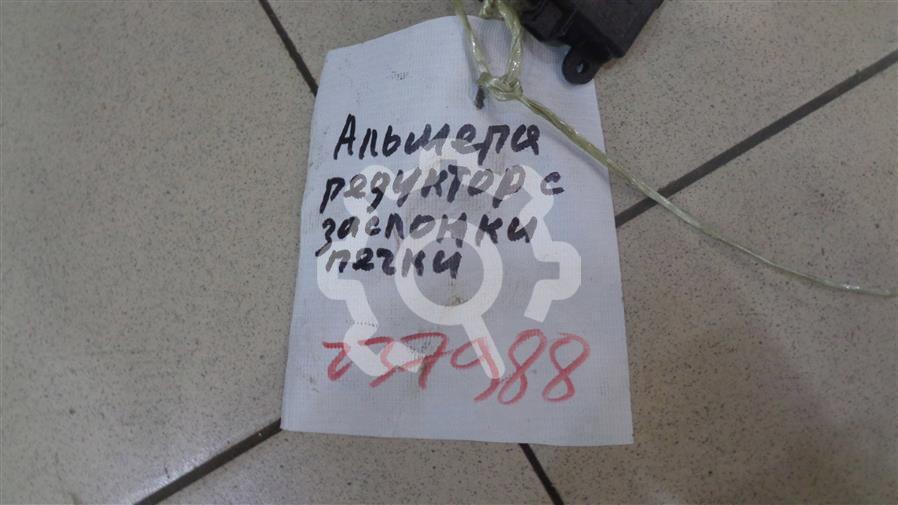 Альмера
редуктор с
заслонки
печки
237988